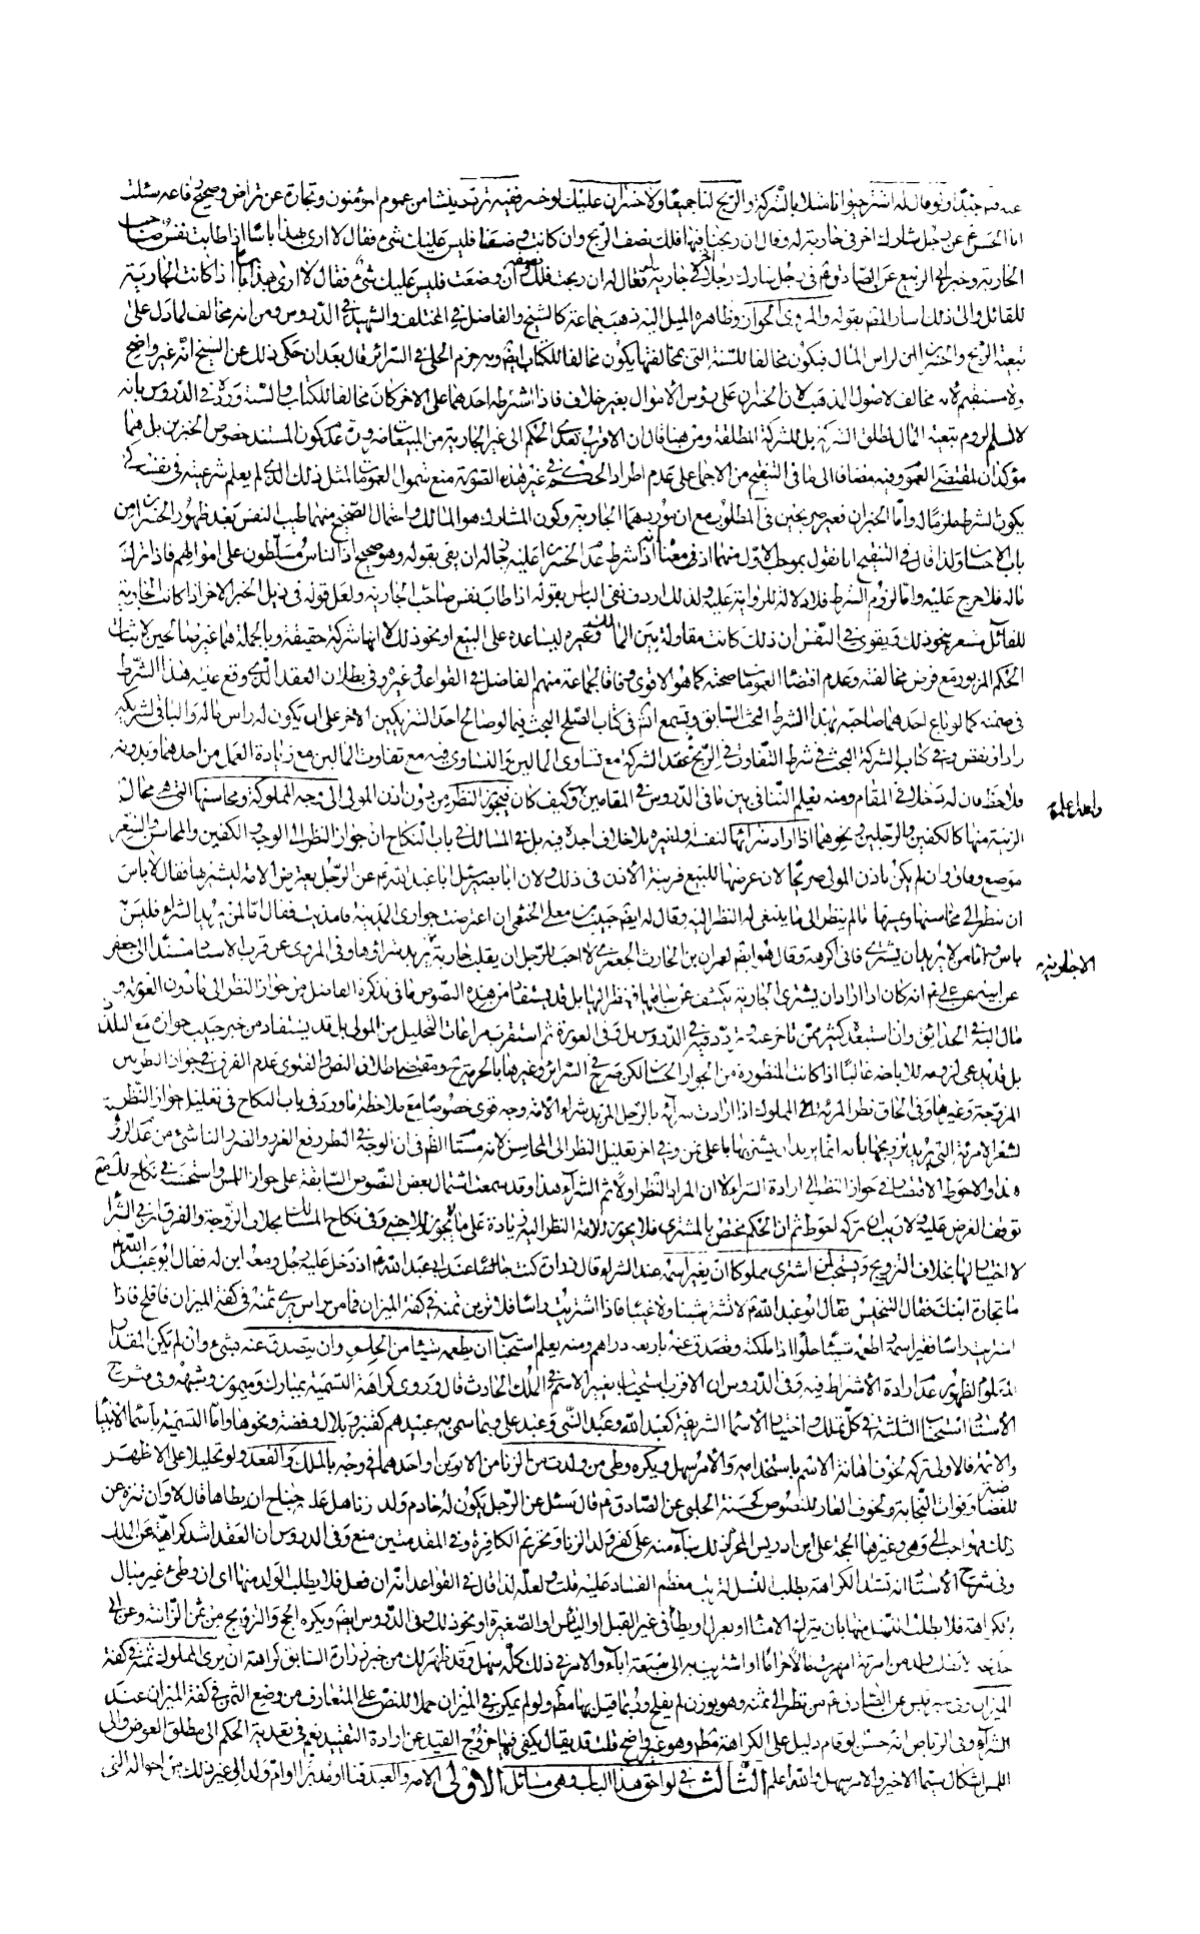 ولو قال له اشترحيوانا مثلا بالشركة والربح لنا جميعا ولا خسران عليك او خسر ففيه تردد ينشا من عموم المؤمنون وتجارة عن تراض وصحيح رفاعه سئلت
ابا الحسن ع عن رجل شارك اخر في جارية له وقال ان ربحنا فيها فلك نصف الربح وان كانت وضيعة فليس عليك شئ فقال لا ارى بهذا باسا اذا طابت نفس صاحب
الجارية وخبر ابي الربيع عن الصادق ع في رجل شارك رجلا في جارية فقال له ان ربحت فلك وان وضعت فليس عليك شئ فقال لا ارى بهذا باسا اذا كانت الجارية
للقائل والى ذلك اشار المصنف بقوله والمروي الجواز وظاهره الميل اليه ذهب جماعة كالشيخ والفاضل في المختلف والشهيد في الدروس ومن انه مخالف لما دل على
تبعية الربح والخسران لراس المال فيكون مخالفا للسنة التي بمخالفتها يكون مخالفا للكتاب ايضا وبه جزم الحلي في السرائر قال بعد ان حكى ذلك عن الشيخ انه غير واضح
ولا مستقيم لانه مخالف لاصول المذهب لان الخسران على رؤس الاموال بغير خلاف فاذا شرطه احدهما على الاخر كان مخالفا للكتاب والسنة ورده في الدروس بانه
لا نسلم لزوم تبعية المال لمطلق الشركة بل للشركة المطلقة ومن هنا قال ان الاقرب تعدي الحكم الى غير الجارية من المبيعات
مؤكدان لمقتضى العموم وفيه مضافا الى ما في التنقيح من الاجماع على عدم اطراد الحكم في غير هذه الصورة منع شمول العمومات لمثل ذلك الذي لم يعلم شرعيته في نفسه
يكون الشرط ملزما له واما الخبران فغير صريحين في المطلوب مع ان موردهما الجارية وكون المشارك هو المالك واحتمال الصحيح منهما طيب النفس بعد ظهور الخسران من
باب الاحسان ولذا قال في التنقيح انا نقول بموجب الاول منهما اذ في معنى انه شرط عدم الخسران عليه ان يفي بقوله وهو صحيح اذ الناس مسلطون على اموالهم فاذا ترك
ماله فلا حرج عليه واما لزوم الشرط فلا دلالة للرواية عليه ولذلك اردف نفي الباس بقوله اذا طاب نفس صاحب الجارية ولعل قوله في ذيل الخبر الاخر اذا كانت الجارية
للقائل مشعر بنحو ذلك ويقوى في النفس ان ذلك كانت مقاولة بين المالك وغيره ليساعده على البيع او نحو ذلك لا انها شركة حقيقة وبالجملة فهما غير صالحين لاثبات
الحكم المزبور مع فرض مخالفته وعدم اقتضاء العمومات صحته كما هو الاقوى وفاقا لجماعة منهم الفاضل في القواعد وغيره وفي بطلان العقد الذي وقع عليه هذا الشرط
في ضمنه كما لو باع احدهما صاحبه بهذا الشرط البحث السابق وتسمع انشاء الله في كتاب الصلح البحث فيما لو صالح احد الشريكين الاخر على ان يكون له راس ماله والباقي لشريكه
زاد او نقص وفي كتاب الشركة البحث في شرط التفاوت في الربح عقد الشركة مع تساوى المالين والتساوى فيه مع تفاوت المالين مع زيادة العمل من احدهما وبدونه
فلاحظ فان له دخلا في المقام ومنه يعلم التنافي بين ما في الدروس في المقامين وكيف كان فيجوز النظر من دون اذن المولى الى وجه المملوكة ومحاسنها التي هي محال
الزينة منها كالكفين والرجلين ونحوهما اذا اراد شرائها لنفسه ولغيره بلا خلاف اجده فيه بل في المسالك في باب النكاح ان جواز النظر الى الوجه والكفين والمحاسن والشعر
موضع وفاق وان لم يكن باذن المولى صريحا لان عرضها للبيع قرينة الاذن في ذلك ولان ابا بصير سئل ابا عبد الله ع عن الرجل يعترض الامة ليشتريها فقال لا باس
ان ينظر الى محاسنها ويمسها ما لم ينظر الى ما ينبغي له النظر اليه وقال له ايضا حبيب بن معلى الخثعمي ان اعترضت جواري المدينة فامذيت فقال اما لمن يريد الشراء فليس
باس واما من لا يريد ان يشتري فاني اكرهه وقال هو ايضا لعمران بن الحارث الجعفري لا احب للرجل ان يقلب جارية الا جارية يريد شراؤها وفي المروي عن قرب الاسناد مسندا الى جعفر
عن ابيه عن علي ع انه كان اذا اراد ان يشترى الجارية يكشف عن ساقيها فينظر اليها بل قد يستفاد من هذه النصوص ما في تذكرة الفاضل من جواز النظر الى ما دون العورة و
مال اليه في الحدائق وان استبعده كثير ممن تاخر عنه وتردد فيه في الدروس بل وفي العورة ثم استقرب مراعات التحليل من المولى بل قد يستفاد من خبر حبيب جوازه مع التلذذ
بل قد يدعى لزومه للاباحة غالبا اذا كانت المنظورة من الجوار الحسان لكن صرح في السرائر وغيرها بالحرمة ومقتضى اطلاق النص والفتوى عدم الفرق في جواز النظر بين
المزوجة وغيرها وفي الحاق نظر المرئة الى المملوك اذا ارادت شرائه بالرجل المريد شراء الامة وجه قوى خصوصا مع ملاحظة ما ورد في باب النكاح في تعليل جواز النظر
لشعر الامرئة التي يريد تزويجها بانه انما يريد ان يشتريها باغلى ثمن وفي اخر تعليل النظر الى المحاسن لانه مستام اذ الظاهر ان الوجه في النظر رفع الغرر والضرر الناشئ من عدم الرؤية
هذا والاحوط الاقتصار في جواز النظر الى ارادة الشراء لا ان المراد النظر اولا ثم الشراء هذا وقد سمعت اشتمال بعض النصوص السابقة على جواز اللمس واستحسنه في نكاح لك مع
توقف الغرض عليه ولا ريب ان تركه احوط ثم ان الحكم مختص بالمشتري فلا يجوز للامة النظر اليه زيادة على ما يجوز للاجنبي وفي نكاح المسالك بخلاف الزوجة والفرق ان في الشراء
لا اختيار لها بخلاف التزويج ويستحب لمن اشترى مملوكا ان يغير اسمه عند الشراء قال زرارة كنت جالسا عند ابي عبد الله ع اذ دخل عليه رجل ومعه ابن له فقال ابو عبد الله ع
ما تجارة ابنك فقال التنخس فقال ابو عبد الله ع لا تشتر شينا ولا عيبا فاذا اشتريت راسا فلا ترين ثمنه في كفة الميزان فما من راس يرى ثمنه في كفة الميزان فافلح فاذا
اشتريت راسا فغير اسمه واطعمه شيئا حلوا اذا ملكته وتصدق عنه باربعة دراهم ومنه يعلم استحباب ان يطعمه شيئا من الحلو وان يتصدق عنه بشئ وان لم يكن المقدار
المعلوم لظهور عدم ارادة الاشتراط فيه وفي الدروس ان الاقرب استحباب تغيير الاسم في الملك الحادث قال وروى كراهة التسمية بمبارك وميمون وشبهه وفي شرح
الاستاد استحباب الثلثة في كل تملك واختيار الاسماء الشريفة كعبد الله وعبد النبي وعبد علي وبما سمي به عبيدهم كقنبر وبلال وفضة ونحوها واما التسمية باسماء الانبياء
والائمة فالاولى تركه لخوف اهانة الاسم باستخدامه والامر سهل ويكره وطي من ولدت من الزنا من الابوين او احدهما في وجه بالملك والعقد ولو تحليلا على الاظهر
للفضاضة وفوات النجابة وخوف العار للنصوص كحسنة الحلبي عن الصادق ع قال سئل عن الرجل يكون له خادم ولد زنا هل عليه جناح ان يطاها قال لا وان تنزه عن
ذلك فهو احب الي وهي وغيرها الحجة على ابن ادريس المحرم لذلك بناء منه على كفر ولد الزنا وتحريم الكافرة وفي المقدمتين منع وفي الدروس ان العقد اشد كراهة عن الملك
وفي شرح الاستاد انه تشتد الكراهة بطلب النسل لترتب معظم الفساد عليه قلت ولعله لذا قال في القواعد انه ان فعل فلا يطلب الولد منها اى ان وطئ غير مبال
بالكراهة فلا يطلب النسل منها بان يترك الامناء او يعزل او يطأ في غير القبل او اليائس او الصغيرة او نحو ذلك وفي الدروس ايضا ويكره الحج والتزويج من ثمن الزانية وعن ابي
الميزان وفي عن الصادق ع من نظر الى ثمنه وهو يوزن لم يفلح وربما قيل بها مطلقا ولو لم يكن في الميزان حملا للنص على المتعارف من وضع الثمن في كفة الميزان عند
الشراء وفي الرياض انه حسن لو قام دليل على الكراهة مطلقا وهو غير واضح قلت قد يقال يكفي فيها خروج القيد عن ارادة التقييد نعم في تعدية الحكم الى مطلق العوض والى
اشكال سيما الاخير والامر سهل والله اعلم الثالث في لواحق هذا الباب وهي مسائل الاولى الامه والعبد قنا او مدبرا او ام ولد الى غير ذلك من احواله التي
والله اعلم
الا جارية